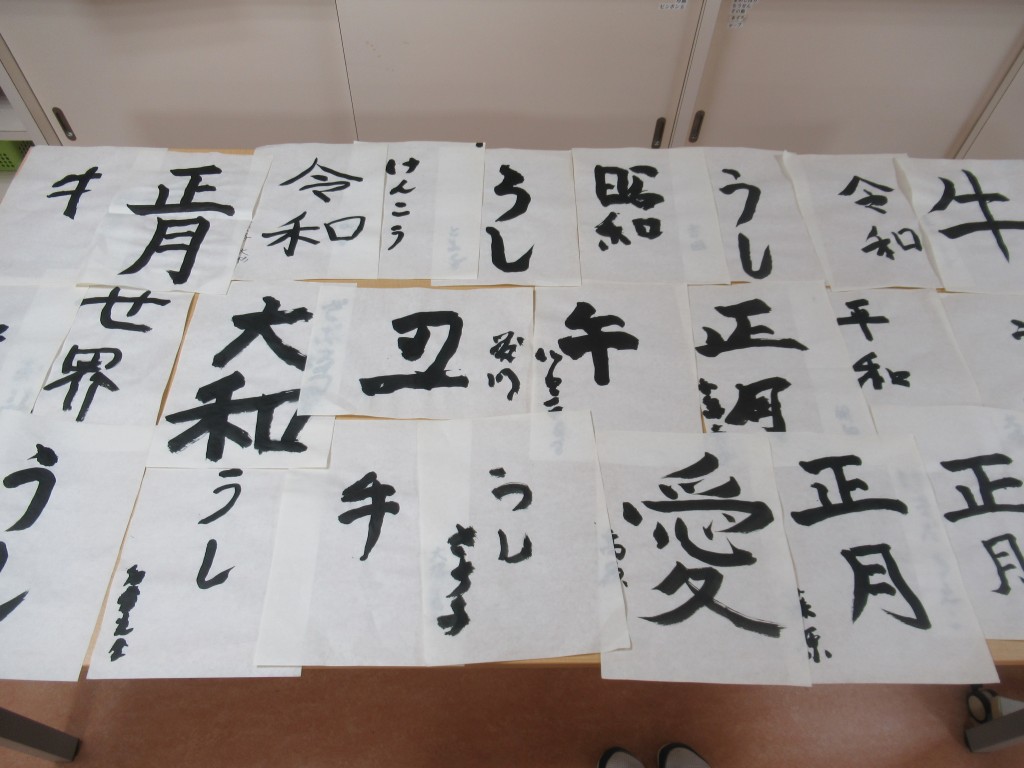 牛
正月
令和
けんこう
うし
昭和
うし
令和
牛
世界
大和
丑
午
正
平和
うし
うし
牛
うし
愛
正月
正月